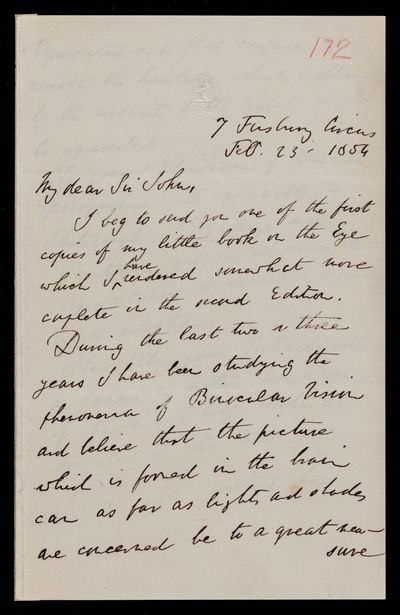 172
7 Finsbury Circus
Feb. 23. 1854
My dear Sir John,
I beg to send you one of the first
copies of my little book on the Eye
have
which I rendered somewhat more
complete in the second Edition.
During the last two or three
years I have been studying the
phenomena of Binocular Vision
and believe that the picture
which is formed in the brain
can as far as lights and shades
are concerned be to a great mea-
sure